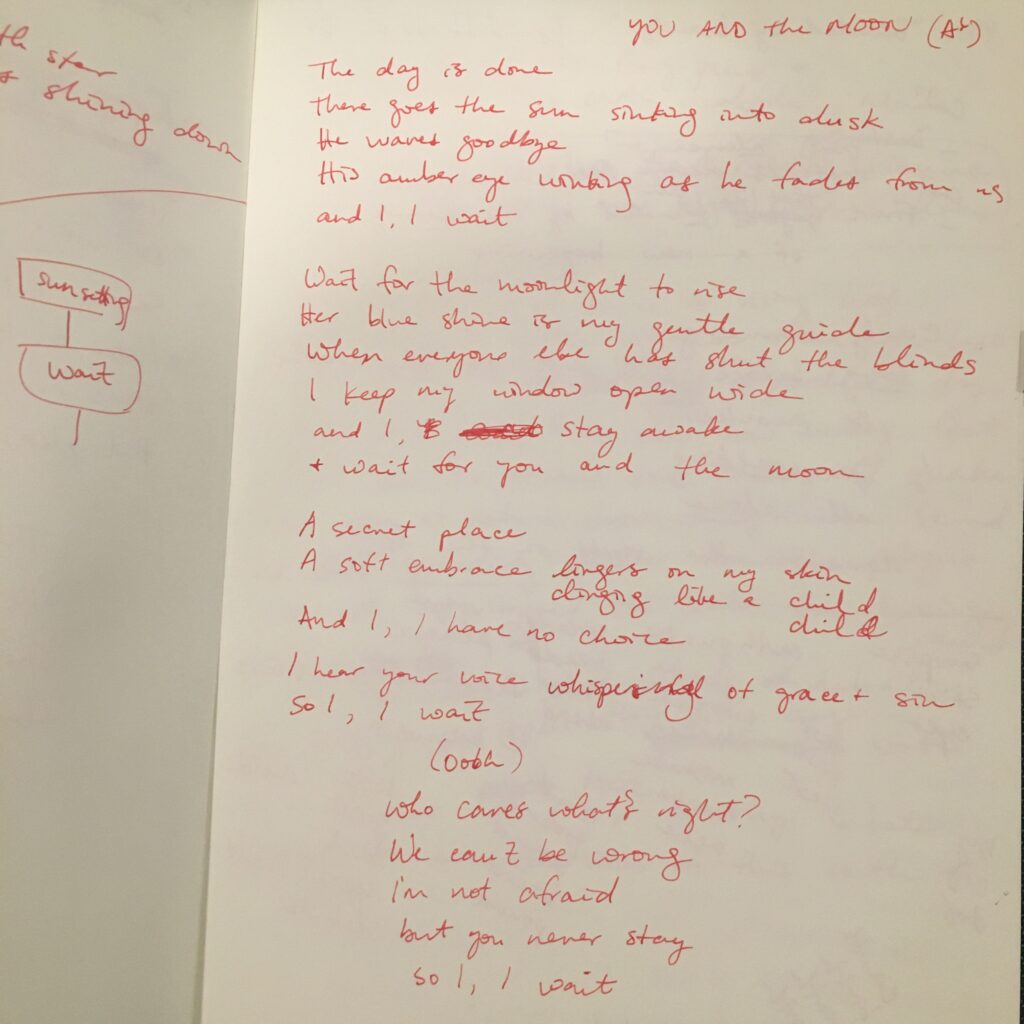 th star
shining down
sun setting
wait
YOU AND the MOON (Ab)
The day is done
there goes the sun sinking into dusk
He waves goodbye
His amber eye winking as he fades from us
and I, I wait
Wait for the moonlight to rise
Her blue shine is my gentle guide
When everyone else has shut the blinds
I keep my window open wide
and I, stay awake
+ wait for you and the moon
A secret place
A soft embrace lingers on my skin
clinging like a child
And I, I have no choice child
I hear your voice whispering of grace + sin
So I, I wait
(oooh)
who cares what's right?
We can't be wrong
I'm not afraid
but you never stay
so I, I wait